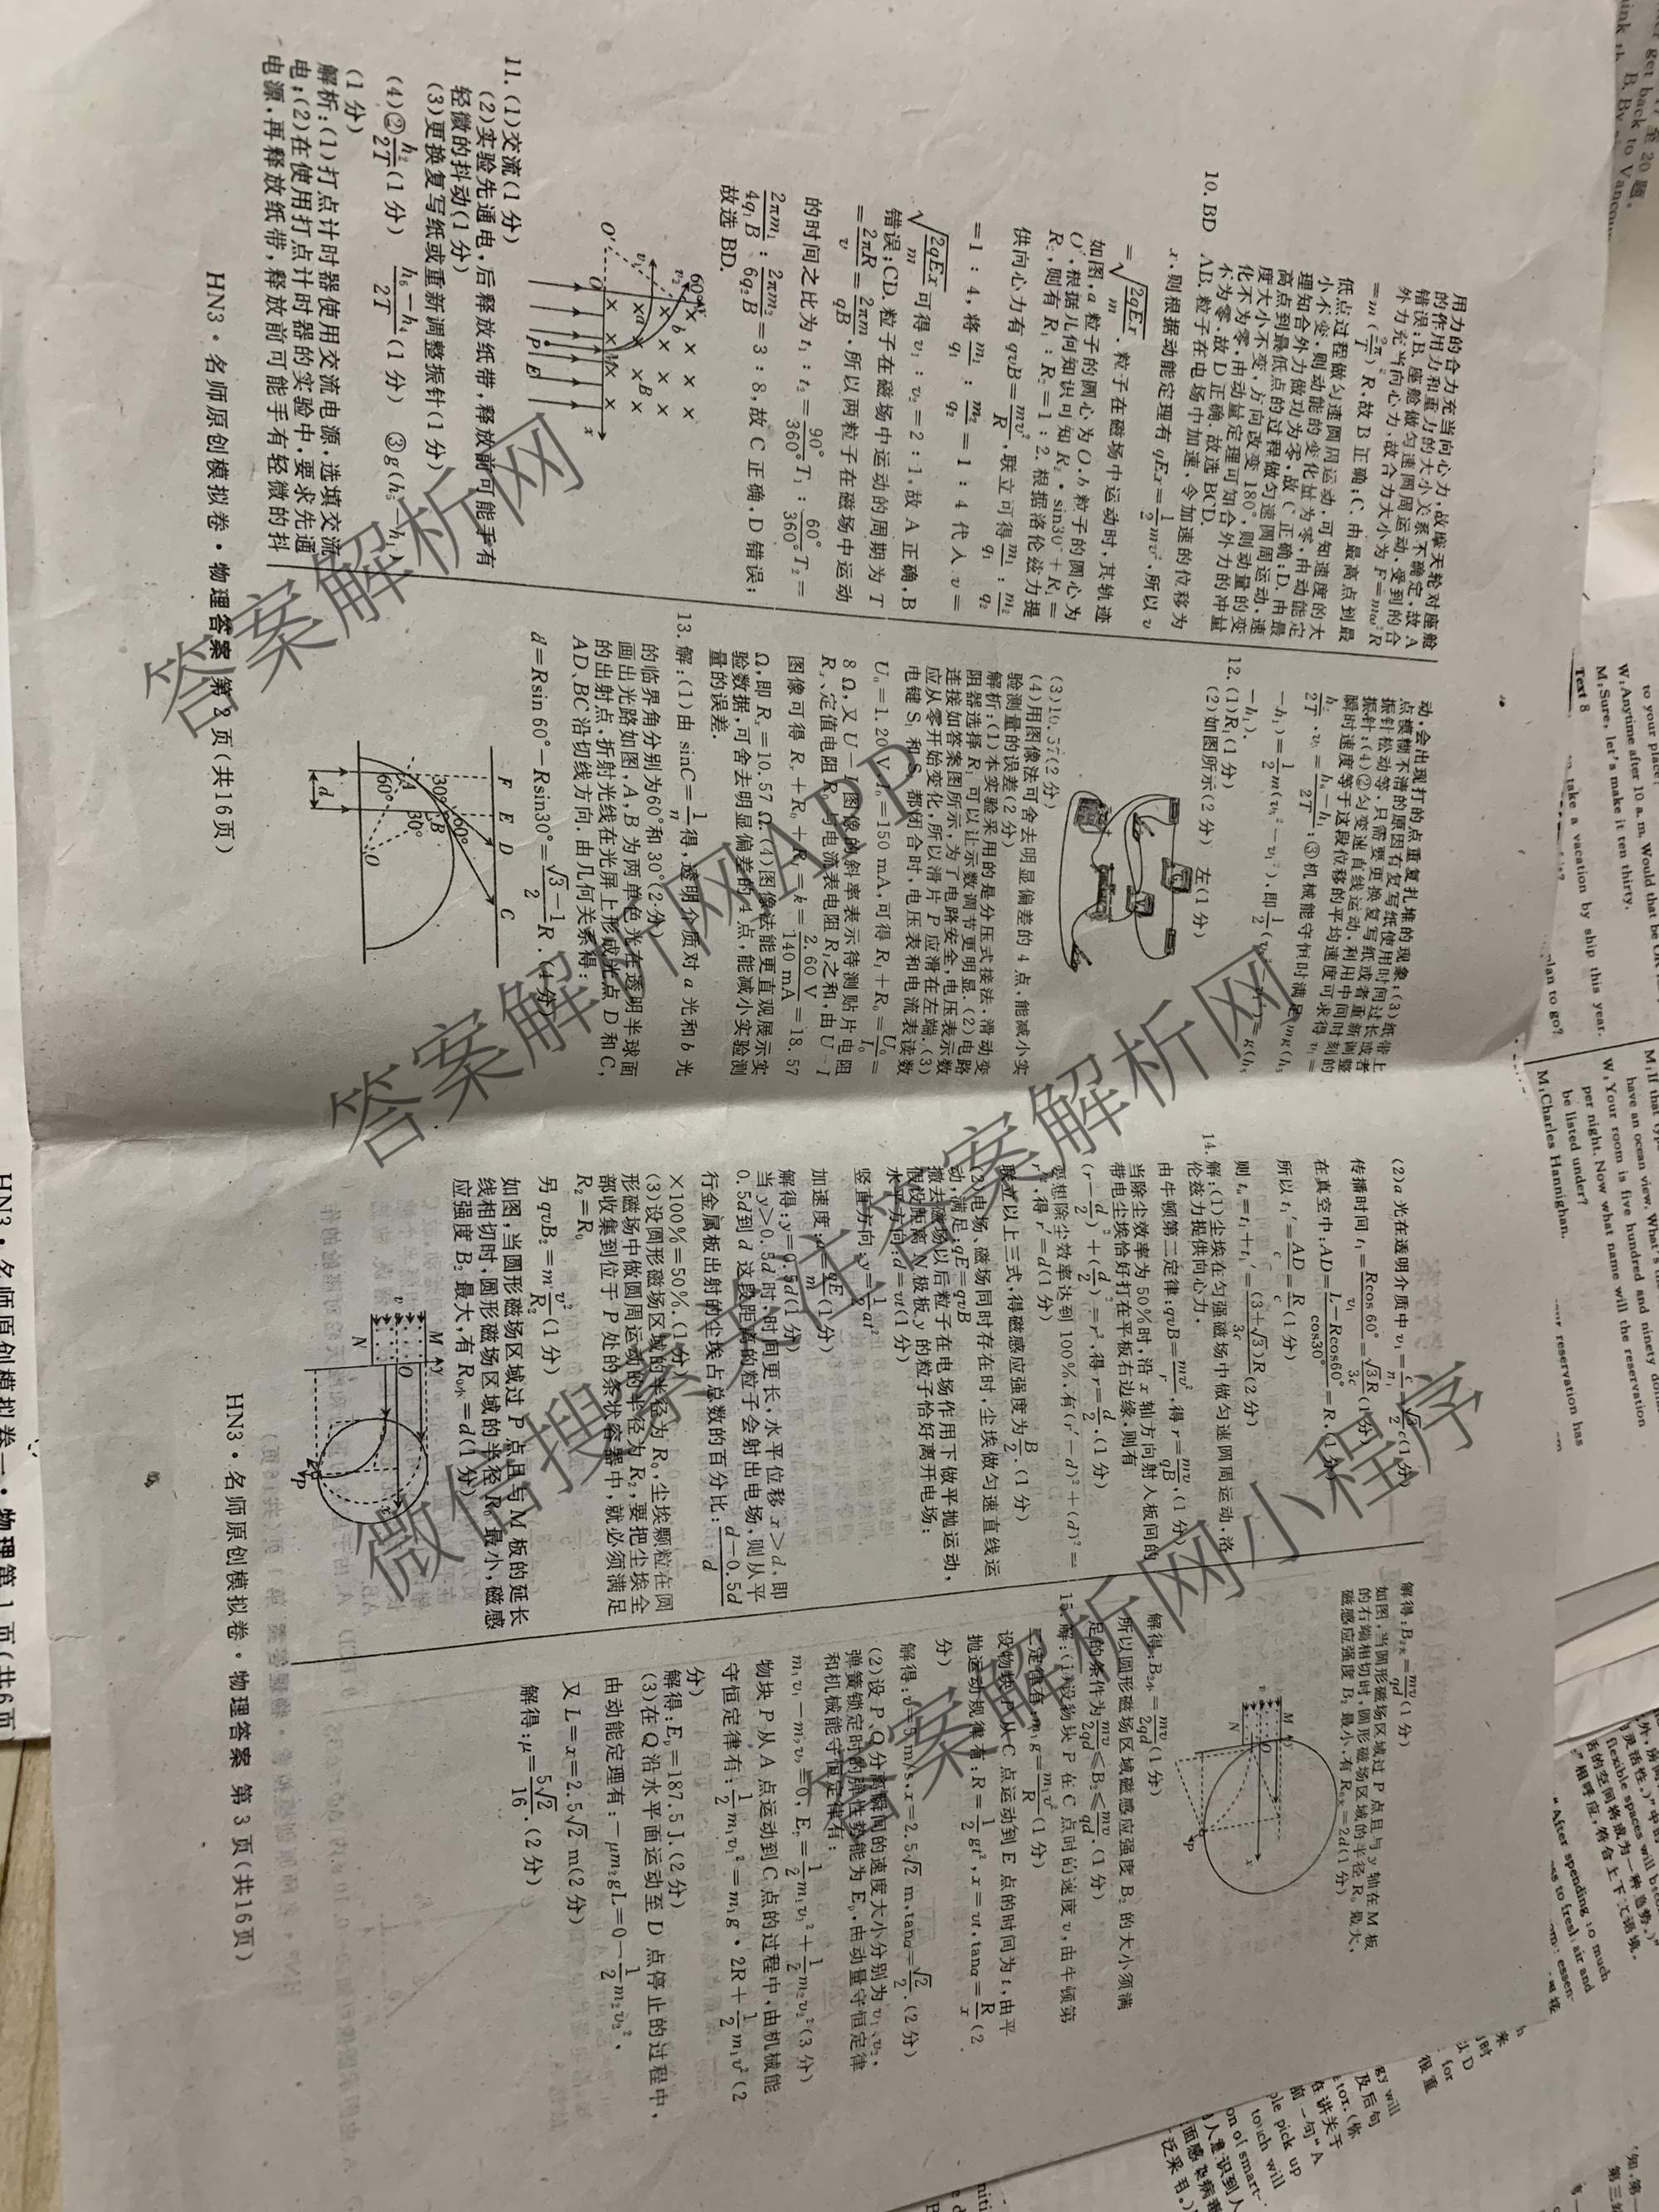 用力的合力充当向心力,故摩天轮对座舱
的作用力和重力的大小关系不确定,故 A
错误;B.座舱做匀速圆周运动,受到的合
外力充当向心力,故合力大小为 F=mω²R
=m(2π/T)²R,故 B 正确;C.由最高点到最
低点过程做匀速圆周运动,可知速度的大
小不变,则动能的变化量为零,由动能定
理知合外力做功为零,故 C 正确;D.由最
高点到最低点的过程做匀速圆周运动,速
度大小不变,方向改变 180°,则动量的变
化不为零,由动量定理可知合外力的冲量
不为零,故 D 正确.故选 BCD.
10.BD AB.粒子在电场中加速,令加速的位移为
x,则根据动能定理有 qEx=1/2mv²,所以 v
=√(2qEx/m),粒子在磁场中运动时,其轨迹
如图,a 粒子的圆心为 O,b 粒子的圆心为
O′,根据几何知识可知 R₂·sin30°+R₁=
R₂,则有 R₁:R₂=1:2.根据洛伦兹力提
供向心力有 qvB=mv²/R,联立可得 m₁/q₁:m₂/q₂
=1:4,将 m₁/q₁:m₂/q₂=1:4 代入 v=
√(2qEx/m)可得 v₁:v₂=2:1,故 A 正确,B
错误;CD.粒子在磁场中运动的周期为 T
=2πR/v=2πm/qB,所以两粒子在磁场中运动
的时间之比为 t₁:t₂=90°/360°T₁:60°/360°T₂=
2πm₁/4q₁B:2πm₂/6q₂B=3:8,故 C 正确,D 错误;
故选 BD.
60° v₂ b v₁ a B O′ O M x P E
11.(1)交流(1 分)
(2)实验先通电,后释放纸带,释放前可能手有
轻微的抖动(1 分)
(3)更换复写纸或重新调整振针(1 分)
(4)②h₂/2T(1 分) h₆-h₄/2T(1 分) ③g(h₅-h₁)
(1 分)
解析:(1)打点计时器使用交流电源,选填交流
电;(2)在使用打点计时器的实验中,要求先通
电源,再释放纸带,释放前可能手有轻微的抖
HN3·名师原创模拟卷·物理答案 第 2 页(共16页)
动,会出现打的点重复扎堆的现象;(3)纸带上
点模糊不清的原因有复写纸使用时间过长或者
振针松动等,只需要更换复写纸或者重新调整
振针;(4)②匀变速直线运动,利用中间时刻的
瞬时速度等于这段位移的平均速度可求得 v₁=
h₂/2T,v₅=h₆-h₄/2T;③机械能守恒时满足 mg(h₅
-h₁)=1/2m(v₅²-v₁²),即1/2(v₅²-v₁²)=g(h₅
-h₁).
12.(1)R₁(1 分)
(2)如图所示(2 分) 左(1 分)
(3)10.57(2 分)
(4)用图像法可舍去明显偏差的 4 点,能减小实
验测量的误差(2 分)
解析:(1)本实验采用的是分压式接法,滑动变
阻器选择 R₁ 可以让示数调节更明显.(2)电路
连接如答案图所示,为了电路安全,电压表示数
应从零开始变化,所以滑片 P 应滑在左端.(3)
电键 S₁ 和 S₂ 都闭合时,电压表和电流表读数
U₀=1.20 V,I₀=150 mA,可得 R₁+R₀=U₀/I₀=
8 Ω,又 U-I 图像的斜率表示待测贴片电阻
Rₓ、定值电阻 R₀ 与电流表电阻 R₁之和,由 U-I
图像可得 Rₓ+R₀+R₁=k=2.60 V/140 mA=18.57
Ω,即 Rₓ=10.57 Ω.(4)图像法能更直观展示实
验数据,可舍去明显偏差的 4 点,能减小实验测
量的误差.
13.解:(1)由 sinC=1/n得,透明介质对 a 光和 b 光
的临界角分别为60°和 30°(2 分)
画出光路如图,A,B 为两单色光在透明半球面
的出射点,折射光线在光屏上形成光点 D 和 C,
AD、BC 沿切线方向.由几何关系得:
d=Rsin 60°-Rsin30°=(√3-1)/2 R.(4 分)
F E D C 30° 60° B A 60° 30° O d
(2)a 光在透明介质中 v₁=c/n₁=√3/2c(1 分)
传播时间 t₁=Rcos 60°/v₁=√3R/3c(1 分)
在真空中:AD=(L-Rcos60°)/cos30°=R,(1 分)
所以 t₁′=AD/c=R/c(1 分)
则 tₐ=t₁+t₁′=(3+√3)R/3c(2 分)
14.解:(1)尘埃在匀强磁场中做匀速圆周运动,洛
伦兹力提供向心力,
由牛顿第二定律:qvB=mv²/r,得 r=mv/qB,(1 分)
当除尘效率为 50%时,沿 x 轴方向射入板间的
带电尘埃恰好打在平板右边缘,则有
(r-d/2)²+(d/2)²=r²,得 r=d/2.(1 分)
要想除尘效率达到 100%,有(r′-d)²+(d)²=
r′²,得 r′=d(1 分)
联立以上三式,得磁感应强度为B/2.(1 分)
(2)电场、磁场同时存在时,尘埃做匀速直线运
动,满足:qE=qvB
撤去磁场以后粒子在电场作用下做平抛运动,
假设距离 N 极板 y 的粒子恰好离开电场:
水平方向:d=vt(1 分)
竖直方向:y=1/2at²
加速度:a=qE/m(1 分)
解得:y=0.5d(1 分)
当 y>0.5d 时,时间更长,水平位移 x>d,即
0.5d到 d 这段距离的粒子会射出电场,则从平
行金属板出射的尘埃占总数的百分比:(d-0.5d)/d
×100%=50%.(1 分)
(3)设圆形磁场区域的半径为 R₀,尘埃颗粒在圆
形磁场中做圆周运动的半径为 R₂,要把尘埃全
部收集到位于 P 处的条状容器中,就必须满足
R₂=R₀
另 qvB₂=mv²/R₂(1 分)
如图,当圆形磁场区域过 P 点且与 M 板的延长
线相切时,圆形磁场区域的半径 R₀ 最小,磁感
应强度 B₂ 最大,有 R₀小=d(1 分)
M y v O N x P
解得:B₂大=mv/qd(1 分)
如图,当圆形磁场区域过 P 点且与 y 轴在 M 板
的右端相切时,圆形磁场区域的半径 R₀ 最大,
磁感应强度 B₂ 最小,有 R₀大=2d(1 分)
M y O N x P
解得:B₂小=mv/2qd(1 分)
所以圆形磁场区域磁感应强度 B₂ 的大小须满
足的条件为mv/2qd≤B₂≤mv/qd.(1 分)
15.解:(1)设物块 P 在 C 点时的速度 v,由牛顿第
二定律有:m₁g=m₁v²/R(1 分)
设物块 P 从 C 点运动到 E 点的时间为 t,由平
抛运动规律有:R=1/2gt²,x=vt,tanα=R/x(2
分)
解得:v=5 m/s,x=2.5√2 m,tanα=√2/2.(2 分)
(2)设 P、Q 分离瞬间的速度大小分别为 v₁、v₂,
弹簧锁定时的弹性势能为 Eₚ,由动量守恒定律
和机械能守恒定律有:
m₁v₁-m₂v₂=0, Eₚ=1/2m₁v₁²+1/2m₂v₂²(3 分)
物块 P 从 A 点运动到 C 点的过程中,由机械能
守恒定律有:1/2m₁v₁²=m₁g·2R+1/2m₁v²(2
分)
解得:Eₚ=187.5 J.(2 分)
(3)在 Q 沿水平面运动至 D 点停止的过程中,
由动能定理有:-μm₂gL=0-1/2m₂v₂²,
又 L=x=2.5√2 m(2 分)
解得:μ=5√2/16.(2 分)
HN3·名师原创模拟卷·物理答案 第 3 页(共16页)
答案解析网
答案解析网APP
答案解析网
微信搜索
答案解析网小程序
Text 8
M:Sure, let's make it ten thirty.
W:Anytime after 10 a.m. Would that be
take a vacation by ship this year.
have an ocean view. What's
W:Your room is five hundred and ninety
per night. Now what name will the reservation
be listed under?
M:Charles Hannighan.
reservation has
"After spending so much